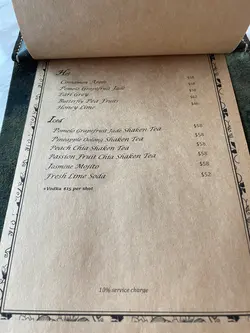 Hot
Cinnamon Apple
Pomelo Grapefruit Jade
Earl Grey
Butterfly Pea Fruit
Honey Lime
Iced
Pomelo Grapefruit Jade Shaken Tea $58
Pineapple Oolong Shaken Tea $58
Peach Chia Shaken Tea $58
Passion Fruit Chia Shaken Tea $58
Jasmine Mojito $58
Fresh Lime Soda $52
+Vodka $15 per shot
10% service charge